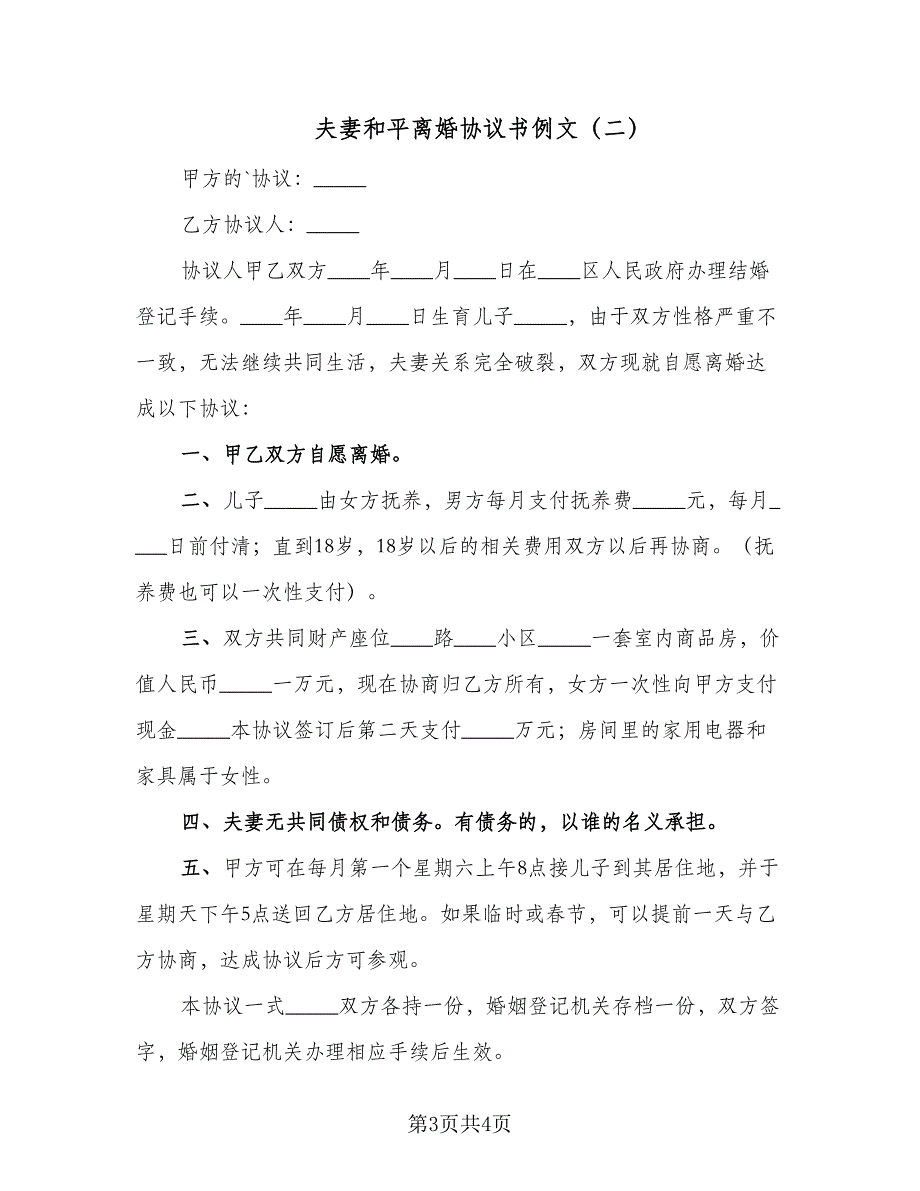 夫妻和平离婚协议书例文（二）
甲方的`协议：_____
乙方协议人：_____
协议人甲乙双方____年____月____日在____区人民政府办理结婚
登记手续。____年____月____日生育儿子_____，由于双方性格严重不
一致，无法继续共同生活，夫妻关系完全破裂，双方现就自愿离婚达
成以下协议：
一、甲乙双方自愿离婚。
二、儿子_____由女方抚养，男方每月支付抚养费_____元，每月_
___日前付清；直到18岁，18岁以后的相关费用双方以后再协商。（抚
养费也可以一次性支付）。
三、双方共同财产座位____路____小区_____一套室内商品房，价
值人民币_____一万元，现在协商归乙方所有，女方一次性向甲方支付
现金_____本协议签订后第二天支付_____万元；房间里的家用电器和
家具属于女性。
四、夫妻无共同债权和债务。有债务的，以谁的名义承担。
五、甲方可在每月第一个星期六上午8点接儿子到其居住地，并于
星期天下午5点送回乙方居住地。如果临时或春节，可以提前一天与乙
方协商，达成协议后方可参观。
本协议一式_____双方各持一份，婚姻登记机关存档一份，双方签
字，婚姻登记机关办理相应手续后生效。
第3页共4页